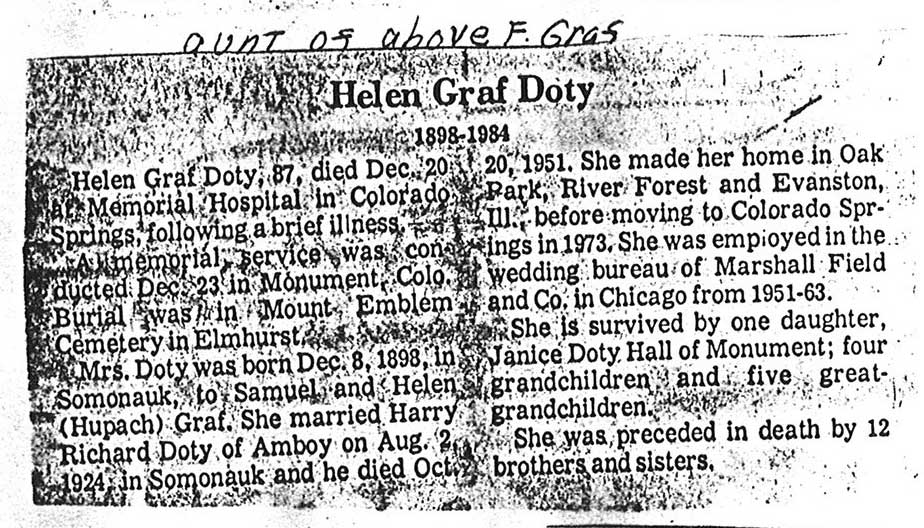 aunt of above F. Gras
Helen Graf Doty
1898-1984
Helen Graf Doty, 87, died Dec. 20
at Memorial Hospital in Colorado
Springs, following a brief illness.
A memorial service was con-
ducted Dec. 23 in Monument, Colo.
Burial was in Mount Emblem
Cemetery in Elmhurst.
Mrs. Doty was born Dec. 8, 1898, in
Somonauk, to Samuel and Helen
(Hupach) Graf. She married Harry
Richard Doty of Amboy on Aug. 2,
1924, in Somonauk and he died Oct.
20, 1951. She made her home in Oak
Park, River Forest and Evanston,
Ill., before moving to Colorado Spr-
ings in 1973. She was employed in the
wedding bureau of Marshall Field
and Co. in Chicago from 1951-63.
She is survived by one daughter,
Janice Doty Hall of Monument; four
grandchildren and five great-
grandchildren.
She was preceded in death by 12
brothers and sisters.